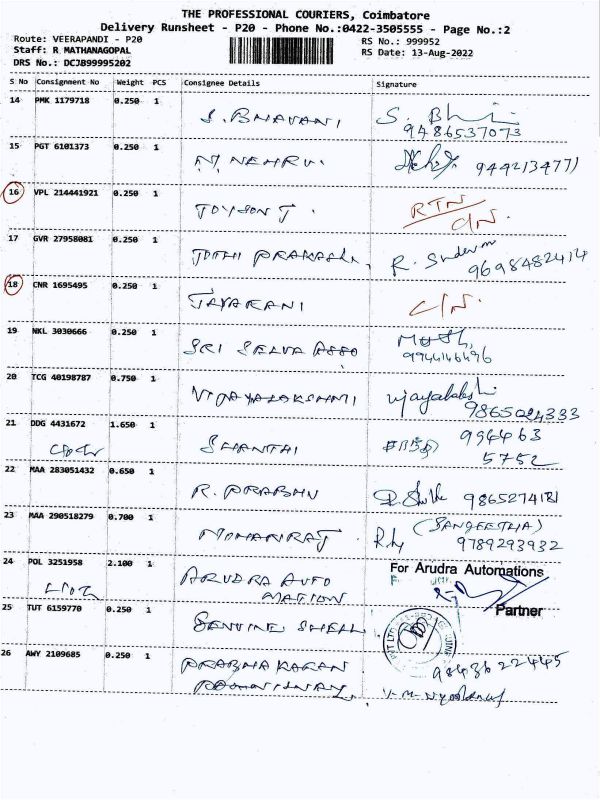 THE PROFESSIONAL COURIERS, Coimbatore
Delivery Runsheet - P20 - Phone No.:0422-3505555 - Page No.:2
Route: VEERAPANDI - P20 RS No.: 999952
Staff: R MATHANAGOPAL RS Date: 13-Aug-2022
DRS No.: DCJB99995202
S No Consignment No Weight PCS Consignee Details Signature
14 PMK 1179718 0.250 1 S. BHAVANI S. Bh
9486537073
15 PGT 6101373 0.250 1 N. NEHRU. 9442134771
16 VPL 214441921 0.250 1 JOYSON J. RTN
C/N.
17 GVR 27958081 0.250 1 JOTHI PRAKASH, R.
9698482414
18 CNR 1695495 0.250 1 JAYARANI C/N.
19 NKL 3030666 0.250 1 SRI SELVA ASSO
9944146496
20 TCG 40198787 0.750 1 VIJAYALAKSHMI Vijayalakshmi
9865024333
21 DDG 4431672 1.650 1 SHANTHI 994463
5752
22 MAA 283051432 0.650 1 R. PRABHU 9865274181
23 MAA 290518279 0.700 1 MOHANRAJ (SANGEETHA)
9789293932
24 POL 3251958 2.100 1 ARUDRA AUTO
MATION
For Arudra Automations
Partner
25 TUT 6159770 0.250 1 GENUINE SHELL
26 AWY 2109685 0.250 1 PRABHAKARAN 9843622445